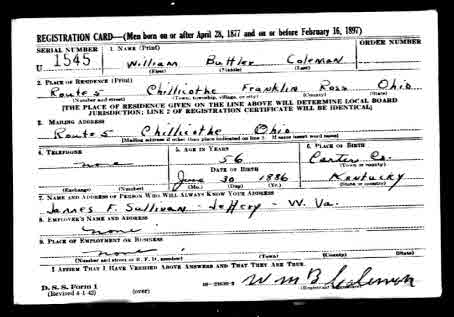 REGISTRATION CARD—(Men born on or after April 28, 1877 and on or before February 16, 1897)
SERIAL NUMBER 1. NAME (Print) ORDER NUMBER
U 1545 William Buttler Coleman
(First) (Middle) (Last)
2. PLACE OF RESIDENCE (Print)
Route 5 Chillicothe Franklin Ross Ohio
(Number and street) (Town, township, village, or city) (County) (State)
[THE PLACE OF RESIDENCE GIVEN ON THE LINE ABOVE WILL DETERMINE LOCAL BOARD
JURISDICTION; LINE 2 OF REGISTRATION CERTIFICATE WILL BE IDENTICAL]
3. MAILING ADDRESS
Route 5 Chillicothe Ohio
[Mailing address if other than place indicated on line 2. If same insert word same]
4. TELEPHONE 5. AGE IN YEARS 6. PLACE OF BIRTH
none 56 Carter Co.
DATE OF BIRTH (Town or county)
June 30 1886 Kentucky
(Exchange) (Number) (Mo.) (Day) (Yr.) (State or country)
7. NAME AND ADDRESS OF PERSON WHO WILL ALWAYS KNOW YOUR ADDRESS
James F. Sullivan - Jeffrey - W. Va.
8. EMPLOYER'S NAME AND ADDRESS
none
9. PLACE OF EMPLOYMENT OR BUSINESS
none
(Number and street or R. F. D. number) (Town) (County) (State)
I AFFIRM THAT I HAVE VERIFIED ABOVE ANSWERS AND THAT THEY ARE TRUE.
D. S. S. Form 1 Wm B Coleman
(Revised 4-1-42) (over) (Registrant's signature)